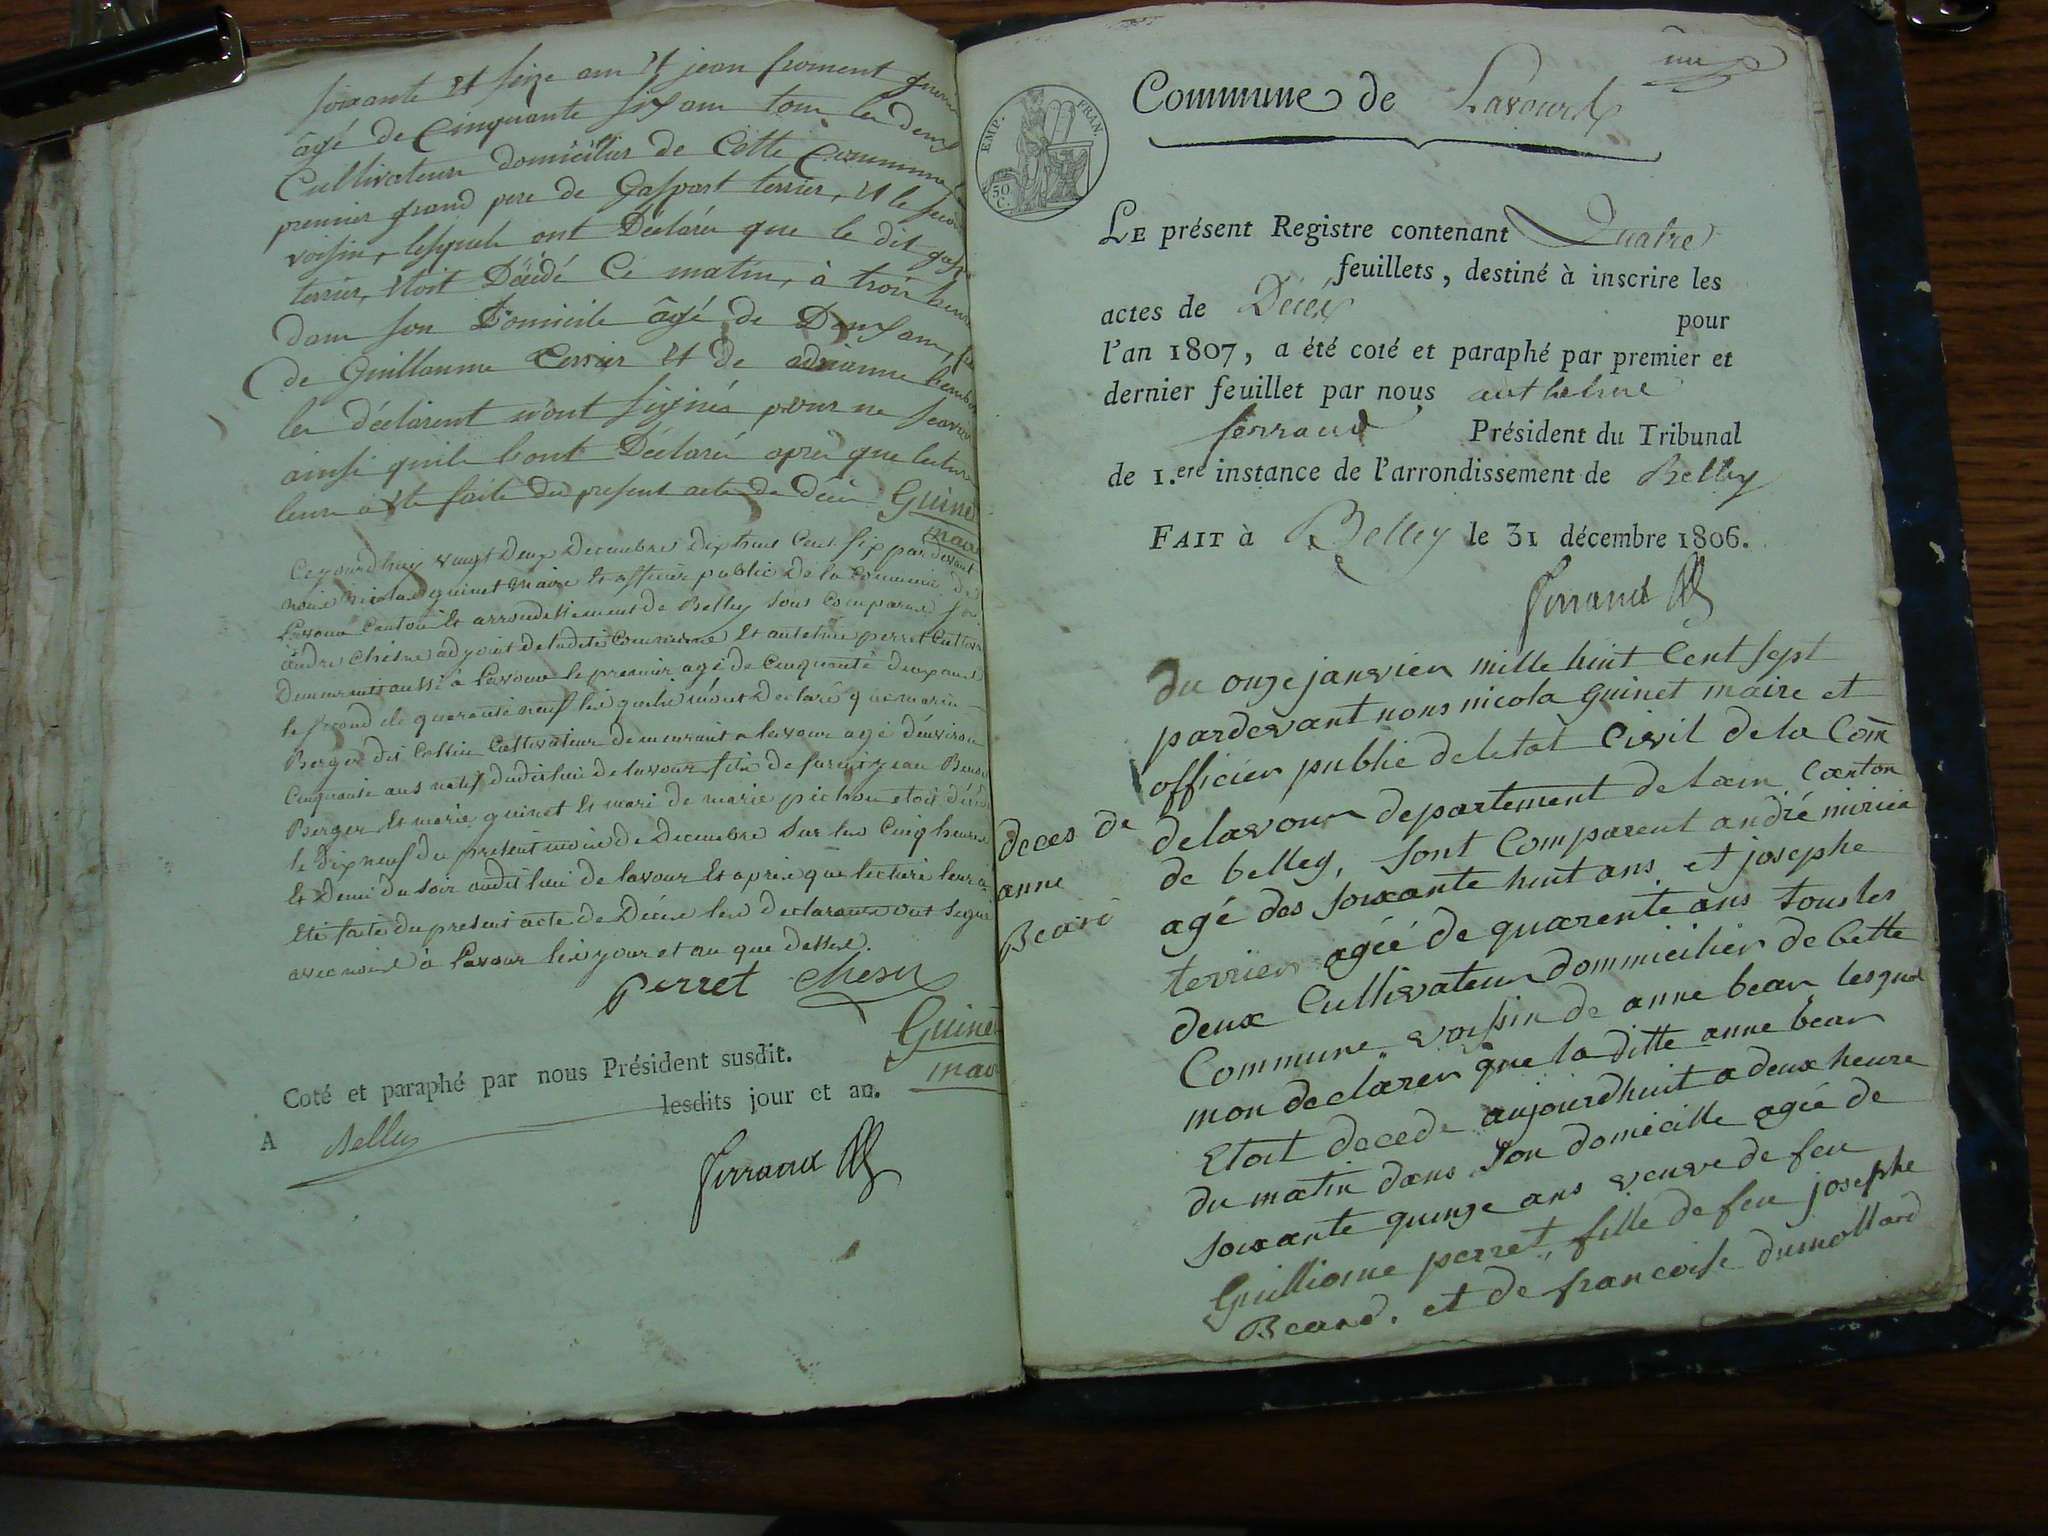 soixante et seize ans et jean froment
âgé de Cinquante six ans tous les deux
Cultivateurs domiciliés de Cette Commune
premier grand pere de Gaspart terrier, et le
voisin, lesquels ont Déclaré que le dit
terrier, étoit Décédé Ce matin, à trois
dans son Domicile âgé de Deux ans,
de Guillaume terrier et de adrianne
les déclarent n'ont signés pour ne
ainsi quils l'ont Déclaré après que lecture
leur a été faite du présent acte de décès Guinet
maire
Cejourdhuy vingt Deux Decembre dix huit Cent six par devant
nous Nicolas guinet maire et officier public de la Commune de
Lavour Canton et arrondissement de Belley sont Comparus
andre Chesne adjoint de ladite Commune et antelme perret
demeurants aussi à Lavour le premier agé de Cinquante deux ans
le second de quarante neuf les quels m'ont declaré que
Berger dit Collin Cultivateur demeurant a lavour agé d'environ
Cinquante ans natif dudit lieu de lavour fils de
Berger et marie guinet et mari de marie pichon etoit
le dix neuf du present mois de Decembre sur les Cinq heures
et Demi du soir audit lieu de lavour et après que lecture leur a
eté faite du present acte de Décès les declarants ont signé
avec nous à Lavour les jour et an que dessus.
Perret Chesne
Guinet
maire
Coté et paraphé par nous Président susdit.
A Belley lesdits jour et an.
Ferrand
un
Commune de Lavours
EMP. FRAN.
50 C.
LE présent Registre contenant Quatre
feuillets, destiné à inscrire les
actes de Décès pour
l'an 1807, a été coté et paraphé par premier et
dernier feuillet par nous anthelme
ferrand Président du Tribunal
de 1.ere instance de l'arrondissement de Belley
FAIT à Belley le 31 décembre 1806.
Ferrand
du onze janvier mille huit Cent sept
pardevant nous nicola guinet maire et
officier public de letat Civil de la Com
delavour departement de lain Canton
de belley, sont Comparent andré
agé des soixante huit ans et josephe
terrier agée de quarente ans tous les
deux Cultivateur dommicilier de Cette
Commune voissin de anne bear lesquel
mon declarer que la ditte anne bear
Etoit decede aujourdhuit a deux heure
du matin dans son domicille agée de
soixante quinze ans veuve de feu
Guilliome perret, fille de feu josephe
Beard. et de francoise dumollard
deces de
anne
Beard